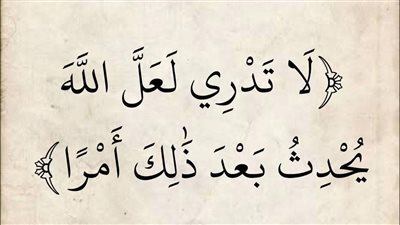 ﴿لَا تَدْرِي لَعَلَّ اللَّهَ
يُحْدِثُ بَعْدَ ذَٰلِكَ أَمْرًا﴾